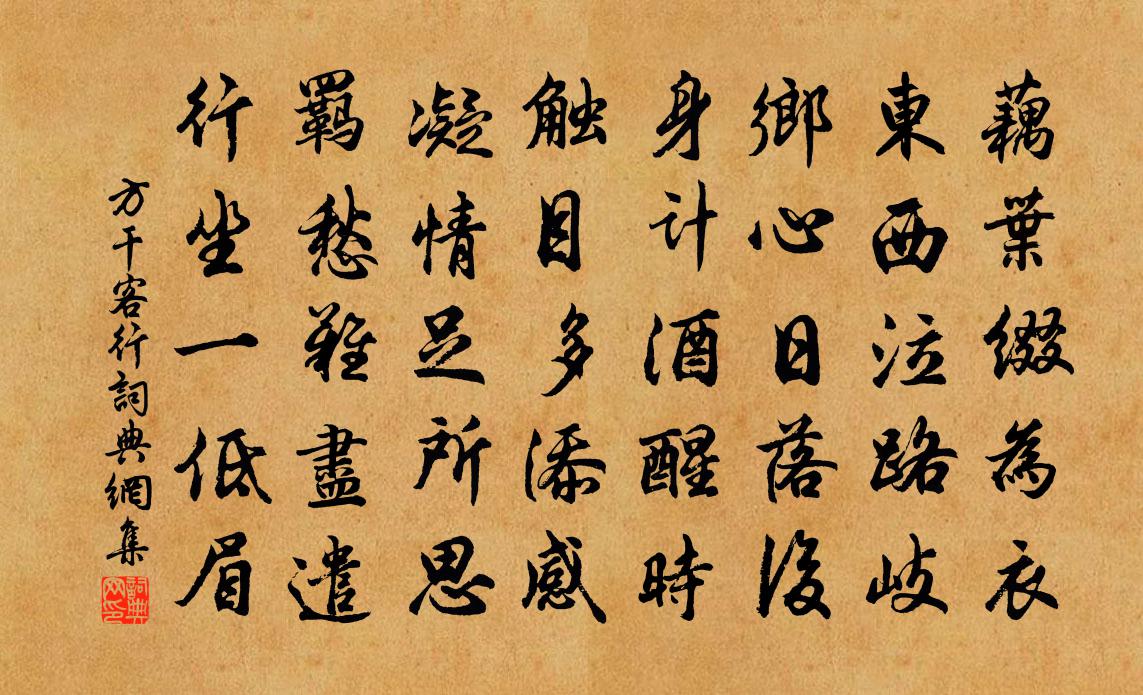 藕葉綴為衣
東西泣路岐
鄉心日落後
身計酒醒時
触目多添感
凝情足所思
羁愁難盡遣
行坐一低眉
方干客行詞典網集
詞典网印